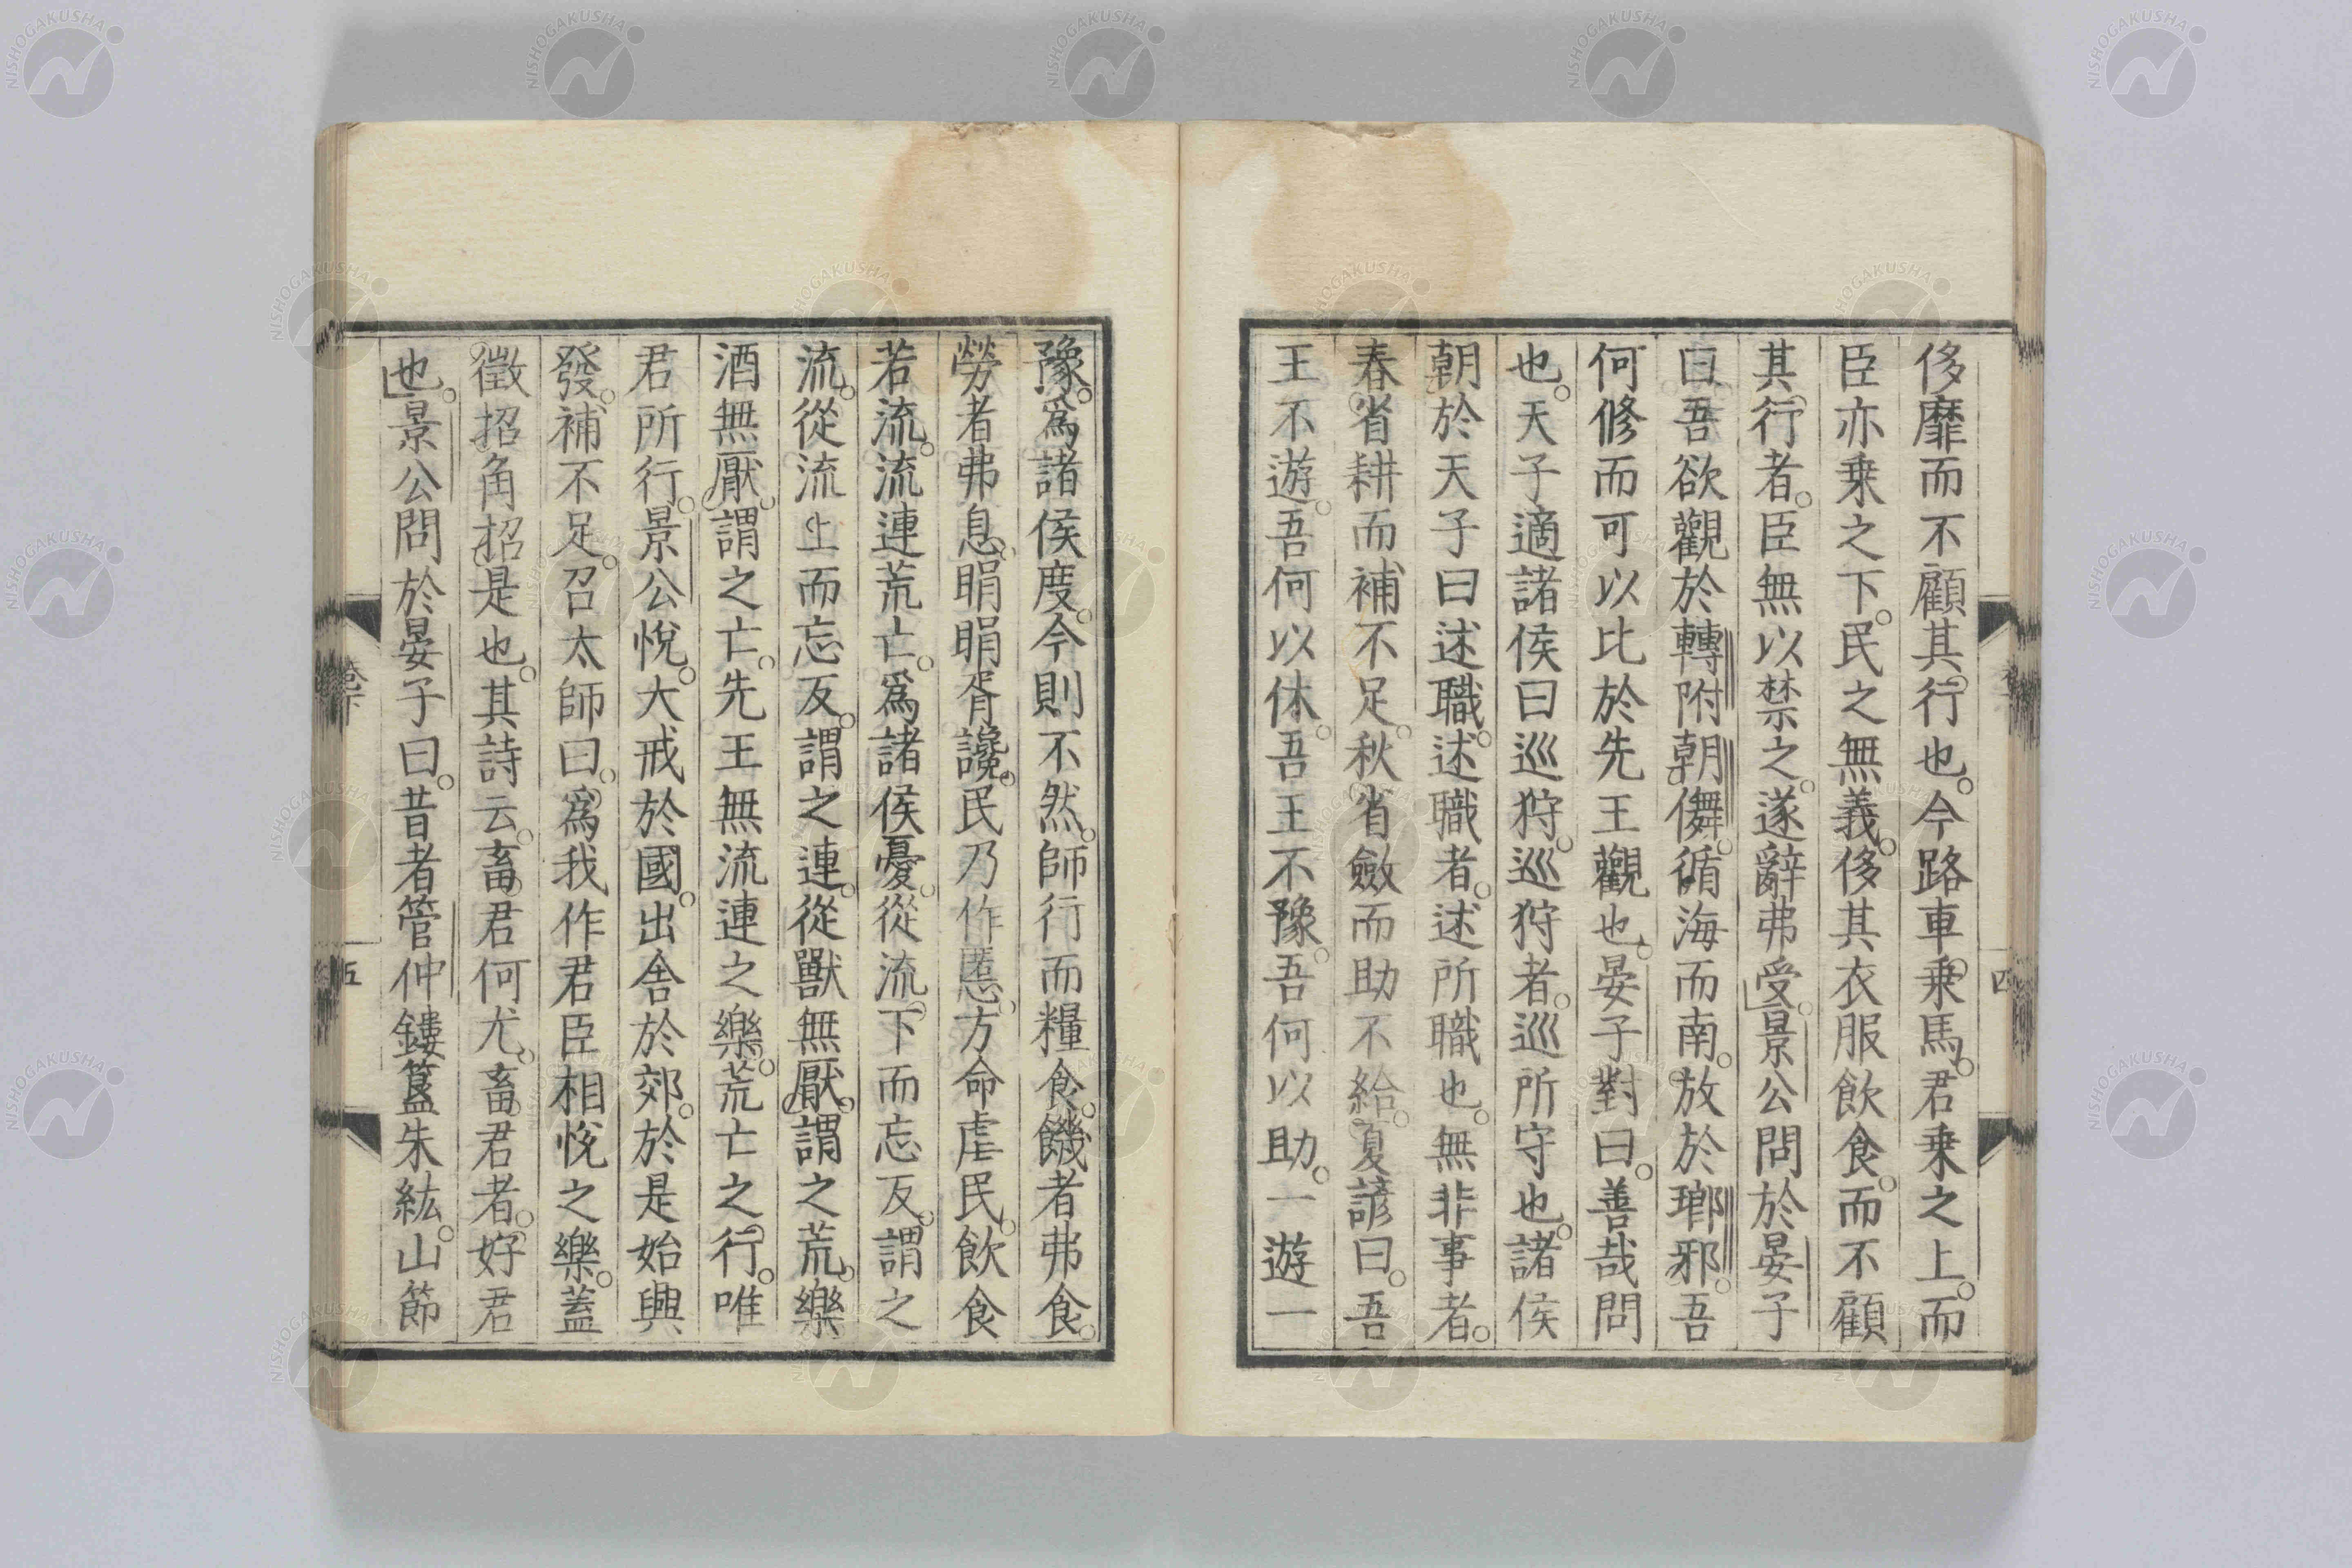 侈靡而不顧其行也。今路車乗馬。君乗之上。而
臣亦乗之下。民之無義。侈其衣服飲食。而不顧
其行者。臣無以禁之。遂辭弗受。」景公問於晏子
曰。吾欲觀於轉附朝儛。循海而南。放於瑯邪。吾
何修而可以比於先王觀也。晏子對曰。善哉問
也。天子適諸侯曰巡狩。巡狩者。巡所守也。諸侯
朝於天子曰述職。述職者。述所職也。無非事者。
春省耕而補不足。秋省斂而助不給。夏諺曰。吾
王不遊。吾何以休。吾王不豫。吾何以助。一遊一
四
豫。爲諸侯度。今則不然。師行而糧食。饑者弗食。
勞者弗息。睊睊胥讒。民乃作慝。方命虐民。飲食
若流。流連荒亡。爲諸侯憂。從流下而忘反。謂之
流。從流上而忘反。謂之連。從獸無厭。謂之荒。樂
酒無厭。謂之亡。先王無流連之樂。荒亡之行。唯
君所行。景公悅。大戒於國。出舍於郊。於是始興
發。補不足。召太師曰。爲我作君臣相悅之樂。蓋
徵招角招是也。其詩云。畜君何尤。畜君者。好君
也。」景公問於晏子曰。昔者管仲鏤簋朱紘。山節
五
NISHOGAKUSHA